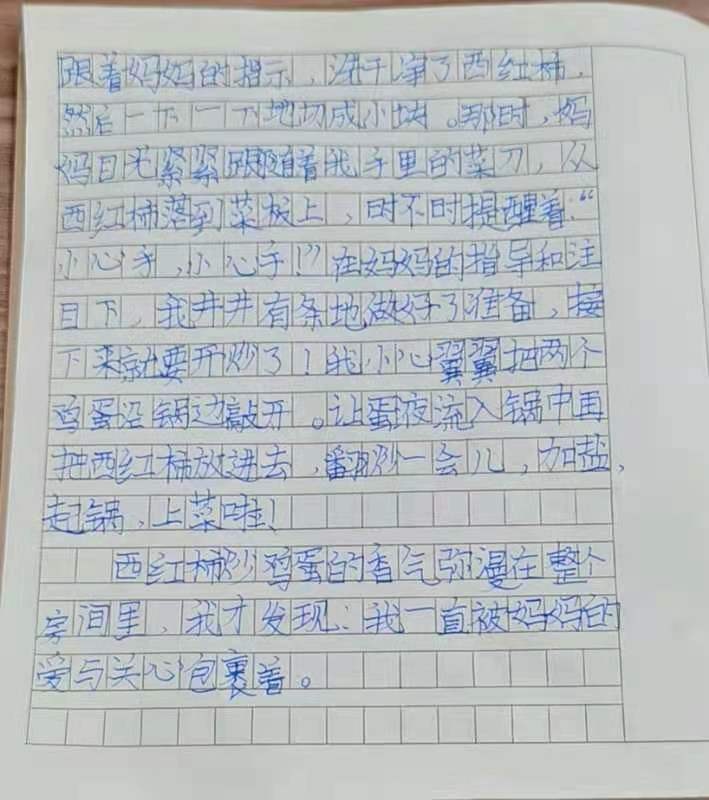 跟着妈妈的指示，洗干净了西红柿，
然后一下一下地切成小块。那时，妈
妈目光紧紧跟随着我手里的菜刀，从
西红柿落到菜板上，时不时提醒着：“
小心手，小心手！”在妈妈的指导和注
目下，我井井有条地做好了准备，接
下来就要开炒了！我小心翼翼把两个
鸡蛋沿锅边敲开。让蛋液流入锅中再
把西红柿放进去，翻炒一会儿，加盐，
起锅，上菜啦！
西红柿炒鸡蛋的香气弥漫在整个
房间里，我才发现：我一直被妈妈的
爱与关心包裹着。